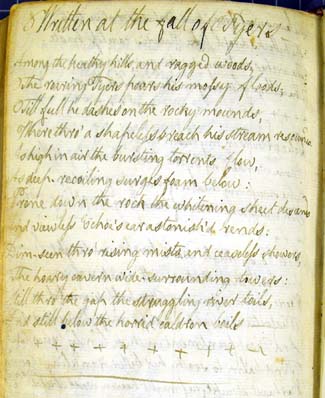 Written at the fall of Fyers
Among the heathy hills and ragged woods,
The roaring Fyers pours his mossy floods;
Till full he dashes on the rocky mounds,
Where thro' a shapeless breach his stream resounds
As high in air the bursting torrents flow,
As deep recoiling surges foam below:
Prone down the rock the whitening sheet descends
And viewless Echo's ear astonish'd rends:
Dim-seen thro' rising mists and ceaseless showers,
The hoary cavern wide-surrounding lowers:
Still thro' the gap the struggling river toils,
And still below the horrid caldron boils
+ + + + + + + +